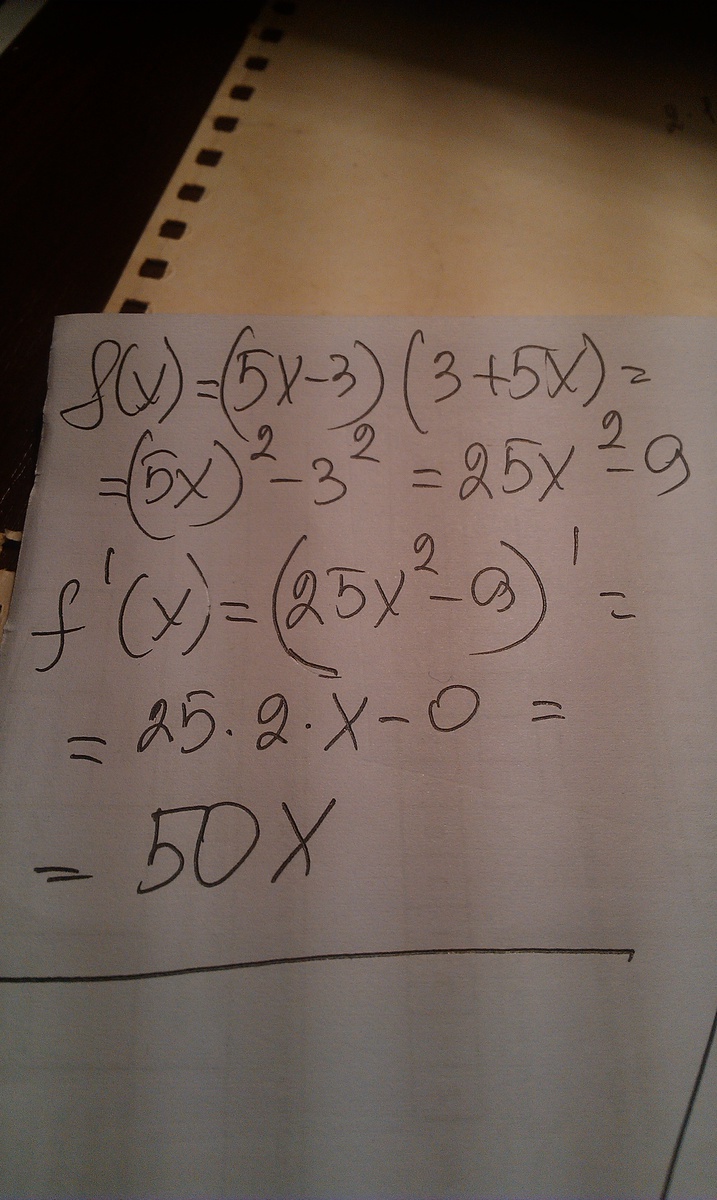 f(x)=(5x-3)(3+5x)=
=(5x)²-3²=25x²-9
f'(x)=(25x²-9)'=
=25·2·x-0=
=50x